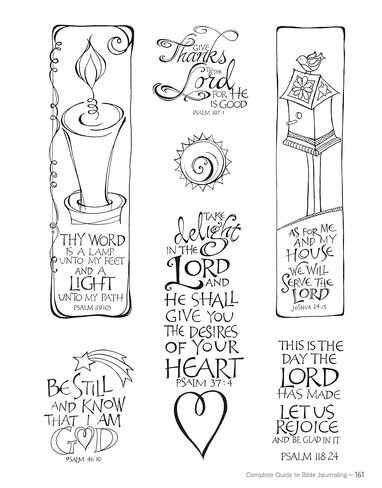 GIVE
Thanks
TO THE
Lord
FOR HE
IS GOOD
PSALM 107:1
THY WORD
IS A LAMP
UNTO MY FEET
AND A
LIGHT
UNTO MY PATH
PSALM 119:105
TAKE
delight
IN THE
LORD
AND
HE SHALL
GIVE YOU
THE DESIRES
OF YOUR
HEART
PSALM 37:4
AS FOR ME
AND MY
HOUSE
WE WILL
SERVE THE
LORD
JOSHUA 24:15
BE STILL
AND KNOW
THAT I AM
GOD
PSALM 46:10
THIS IS THE
DAY THE
LORD
HAS MADE
LET US
REJOICE
AND BE GLAD IN IT
PSALM 118:24
Complete Guide to Bible Journaling •• 161